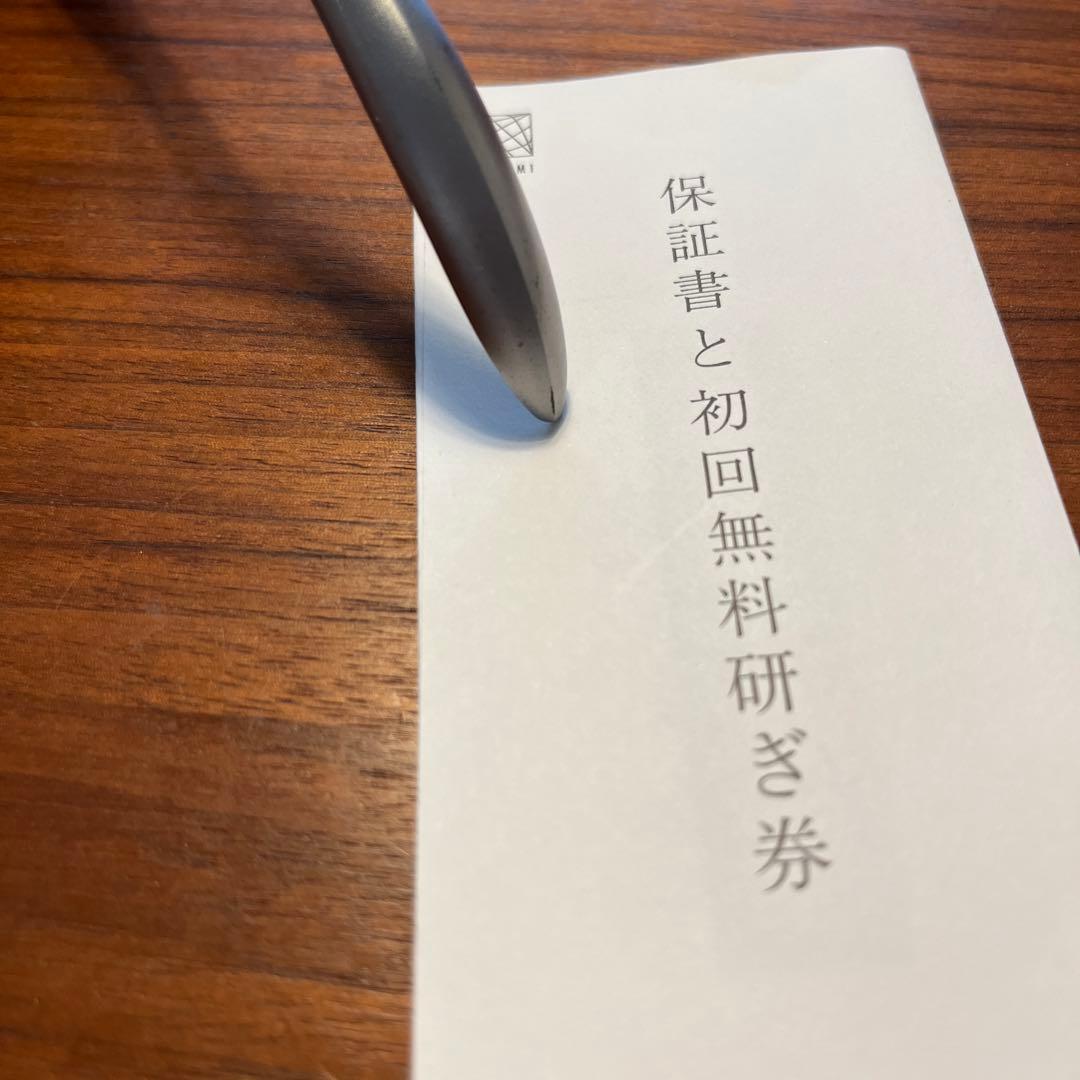 保証書と初回無料研ぎ券